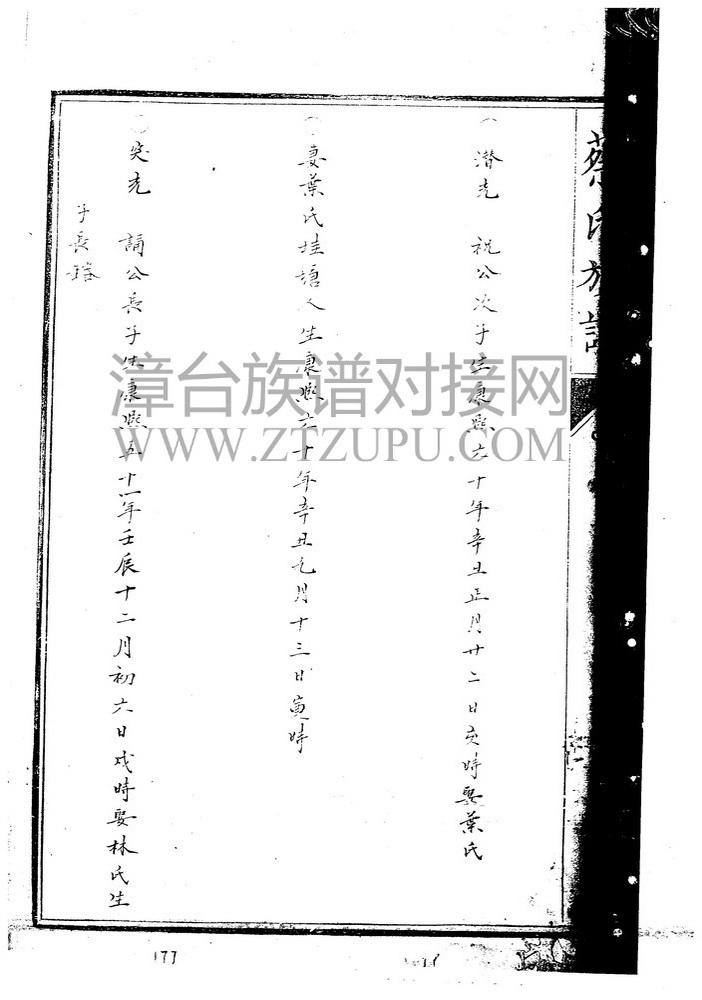 蔡氏族譜
潛光 祝公次子生康熙六十年辛丑正月廿二日亥時娶葉氏
妻葉氏埕塘人生康熙六十年辛丑七月十三日寅時
奕光 誦公長子生康熙五十一年壬辰十二月初六日戌時娶林氏生
子長
漳台族谱对接网
WWW.ZTZUPU.COM
177